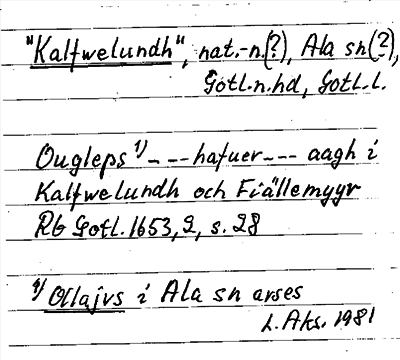 "Kalfwelundh", nat.-n.(?), Ala sn(?),
Gotl.n.hd, Gotl.l.
Ougleps 1) - --- hafuer --- aagh i
Kalfwelundh och Fiällemyyr
Rb Gotl. 1653, 2, s. 28
1) Ollajvs i Ala sn arses
L. Aks. 1981